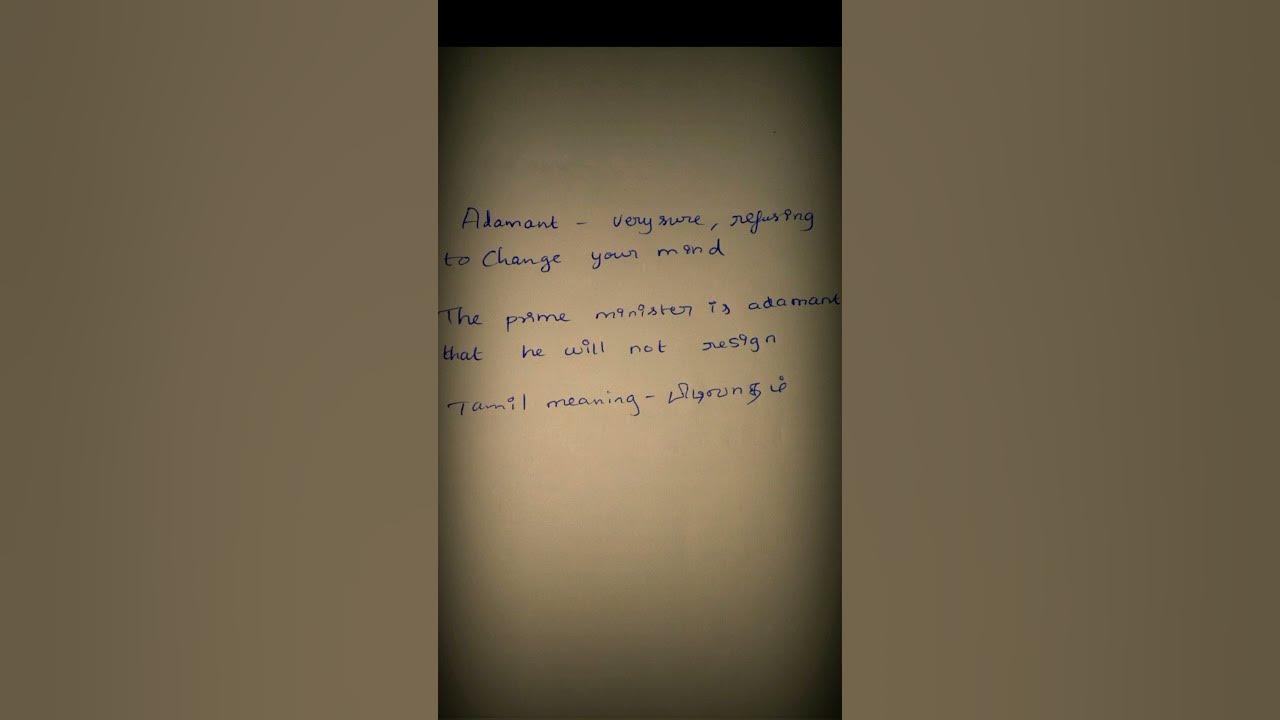 Adamant - very sure, refusing
to Change your mind
The prime minister is adamant
that he will not resign
Tamil meaning - பிடிவாதம்